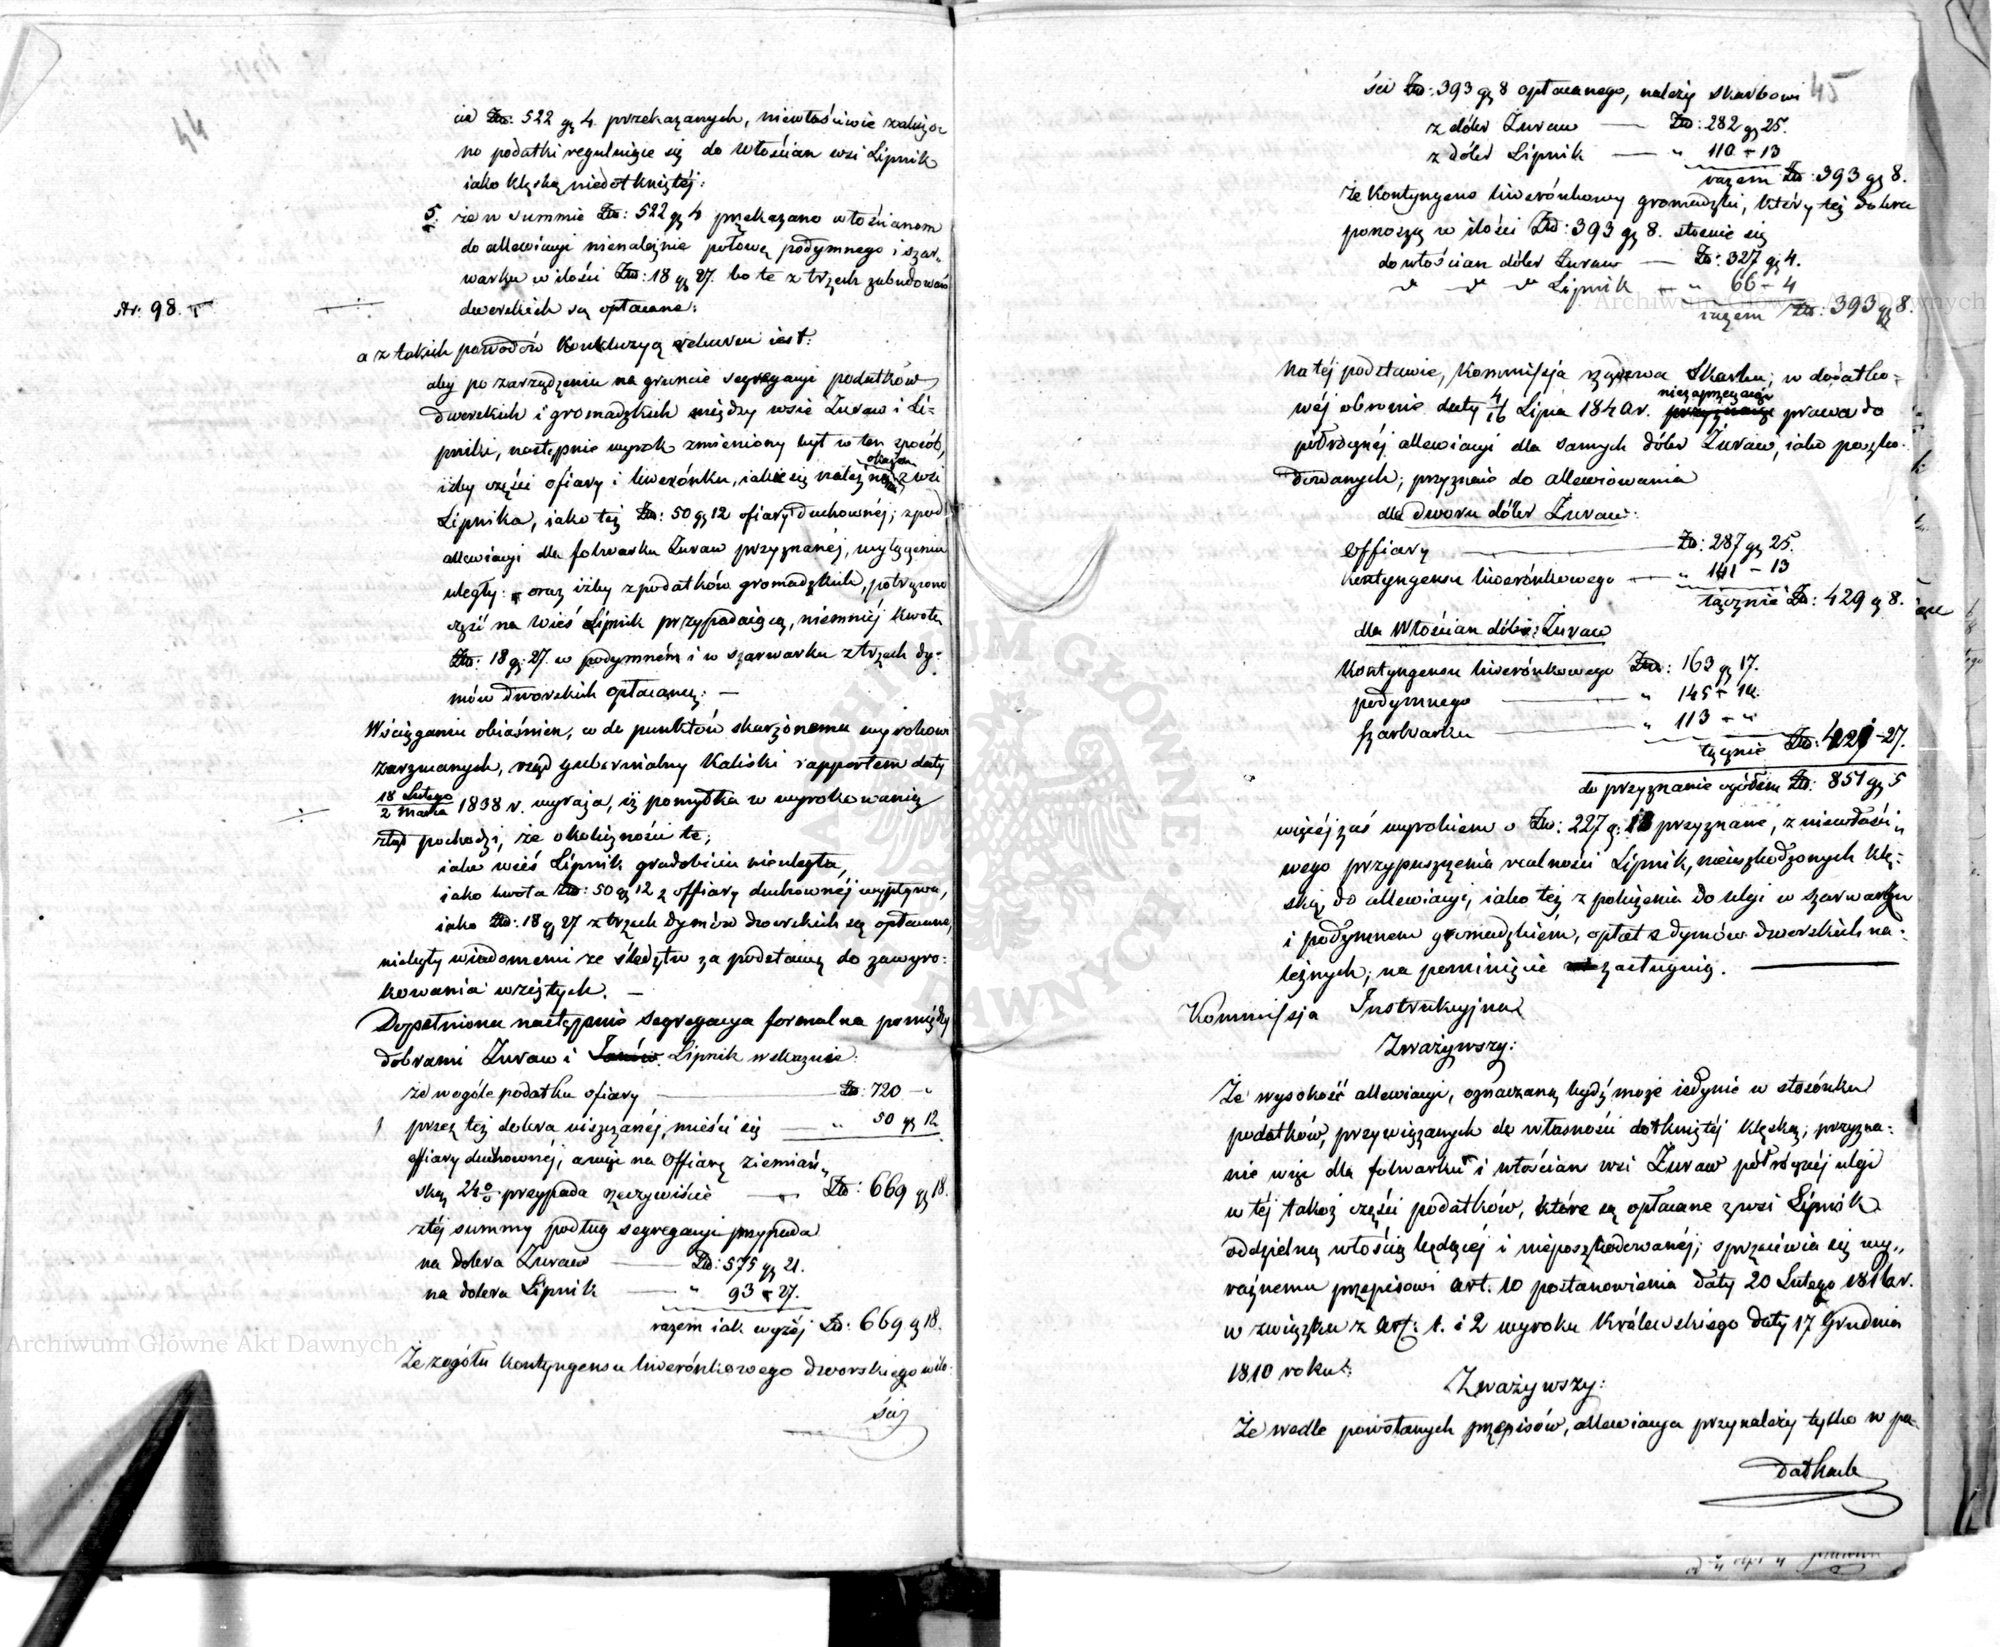 44
cia Złt: 522 gr 4. przekazanych, niewłaściwie zaliczo-
no podatki regulujące się do Włościan wsi Lipnik
iako klęską niedotkniętéj:
5. że w summie Złt: 522 gr 4 przekazano włościanom
do allewiacyi nienależnie połowę podymnego i szar-
warku w ilości Złt: 18 gr 27. bo te z trzech zabudowań
dworskich są opłacane:
str. 98.
a z takich powodów konkluzyą rekursu iest:
aby po zarządzeniu na gruncie segregacyi podatków
dworskich i gromadzkich między wsie Żuraw i Li-
pniki, następnie wyrok zmieniony był w ten sposób,
iżby części ofiary i liwerónku, iakie się należą z wsi
Lipnika, iako też Złt: 50 gr 12 ofiary duchownéj, z pod
allewiacyi dla folwarku Żuraw przyznanéj, wyłączeniu
uległy: oraz iżby z podatków gromadzkich, potrącono
część na wieś Lipnik przypadaiącą, niemniéj kwotę
Złt: 18 gr: 27. w podymném i w szarwarku z trzech dy-
mów dworskich opłacaną: —
W ściąganiu obiaśnien, co do punktów skarżonemu wyrokowi
zarzucanych, rząd gubernialny Kaliski rapportem daty
18 Lutego
2 Marca 1838 r. wyraża, iż pomyłka w wyrokowaniu
ztąd pochodzi, że okoliczności te;
iako wieś Lipnik gradobiciu nieuległa,
iako kwota Złt: 50 gr 12 z offiary duchownéj wypływa,
iako Złt: 18 gr 27 z trzech dymów dworskich są opłacane,
niebyły wiadomemi ze śledztw za podstawę do zawyro-
kowania wziętych. —
Dopełniona następnie segregacya formalna pomiędzy
dobrami Żuraw i Lipnik wskazuie:
że wogóle podatku ofiary — Złt: 720 — „
przez też dobra uiszczanéj, mieści się — „ 50 gr 12
offiary duchownéj, a więc na Offiarę ziemiań-
ską 24% przypada rzeczywiście — Złt: 669 gr 18.
z téj summy podług segregacyi przypada
na dobra Żuraw — Złt: 575 gr 21.
na dobra Lipnik — „ 93 — 27.
razem iak wyżéj Złt: 669 gr 18.
Że z ogółu kontyngensu liwerónkowego dworskiego w ilo-
ści
45
ści Złt: 393 gr 8 opłacanego, należy skarbowi
z dóbr Żuraw — Złt: 282 gr 25.
z dóbr Lipnik — „ 110 — 13
razem Złt: 393 gr 8.
że Kontyngens liwerónkowy gromadzki, który też dobra
ponoszą w ilości Złt: 393 gr 8. stosuie się
do włościan dóbr Żuraw — Złt: 327 gr 4.
Lipnik — „ 66 — 4
razem Złt: 393 gr 8.
Na téj podstawie, Kommissja rządowa Skarbu, w dodatko-
wéj obronie daty 4/16 Lipca 1840 r. niezaprzeczaiąc prawa do
półrocznéj allewiacyi dla samych dóbr Żuraw, iako poszko-
dowanych, przyznaie do allewiowania
dla dworu dóbr Żuraw:
Offiary — Złt: 287 gr 25.
Kontyngensu liwerónkowego — „ 141 — 13
łącznie Złt: 429 gr 8.
dla Włościan dóbr: Żuraw
Kontyngensu liwerónkowego Złt: 163 gr 17.
podymnego — „ 145 — 10.
szarwarku — „ 113 — „
łącznie Złt: 421 — 27.
do przyznania ogółem Złt: 851 gr 5
więcéj zaś wyrokiem o Złt: 227 gr: przyznane, z niewłaści-
wego przypuszczenia realności Lipnik, nieuszkodzonych klę-
ską, do allewiacyi, iako też z policzenia do ulgi w szarwarku
i podymnem gromadzkiém, opłat z dymów dworskich na-
leżnych, na pominięcie zasługuią. —
Kommissja Instrukcyjna
Zważywszy:
Że wysokość allewiacyi, oznaczaną bydź może iedynie w stosónku
podatków, przywiązanych do własności dotkniętéj klęską; przyzna-
nie więc dla folwarku i włościan wsi Żuraw półrocznéj ulgi
w téj takoż części podatków, które są opłacane z wsi Lipnik
oddzielną włością będącéj i nieposzkodowanéj, sprzeciwia się wy-
raźnemu przepisowi art. 10 postanowienia daty 20 Lutego 1816 r.
w związku z art: 1. i 2 wyroku Królewskiego daty 17 Grudnia
1810 roku:
Zważywszy:
Że wedle powołanych przepisów, allewiacya przynależy tylko w po-
datkach
Archiwum Główne Akt Dawnych
Archiwum Główne Akt Dawnych
ARCHIWUM GŁÓWNE AKT DAWNYCH